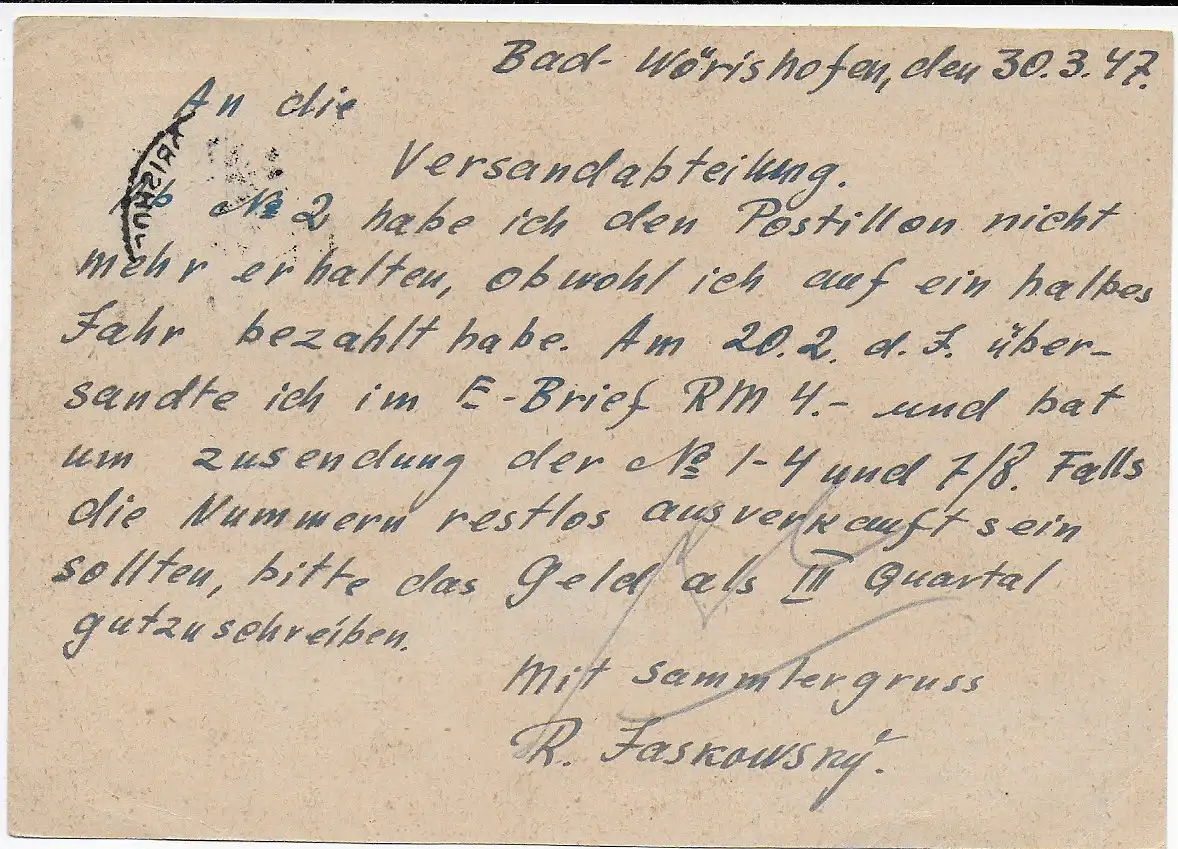 Bad-Wörishofen, den 30.3.47.
An die
Versandabteilung.
Ab № 2 habe ich den Postillon nicht
mehr erhalten, obwohl ich auf ein halbes
Jahr bezahlt habe. Am 20.2. d.J. über-
sandte ich im E-Brief RM 4.- und bat
um zusendung der № 1-4 und 7/8. Falls
die Nummern restlos ausverkauft sein
sollten, bitte das Geld als III Quartal
gutzuschreiben.
Mit Sammlergruss
R. Jaskowský.